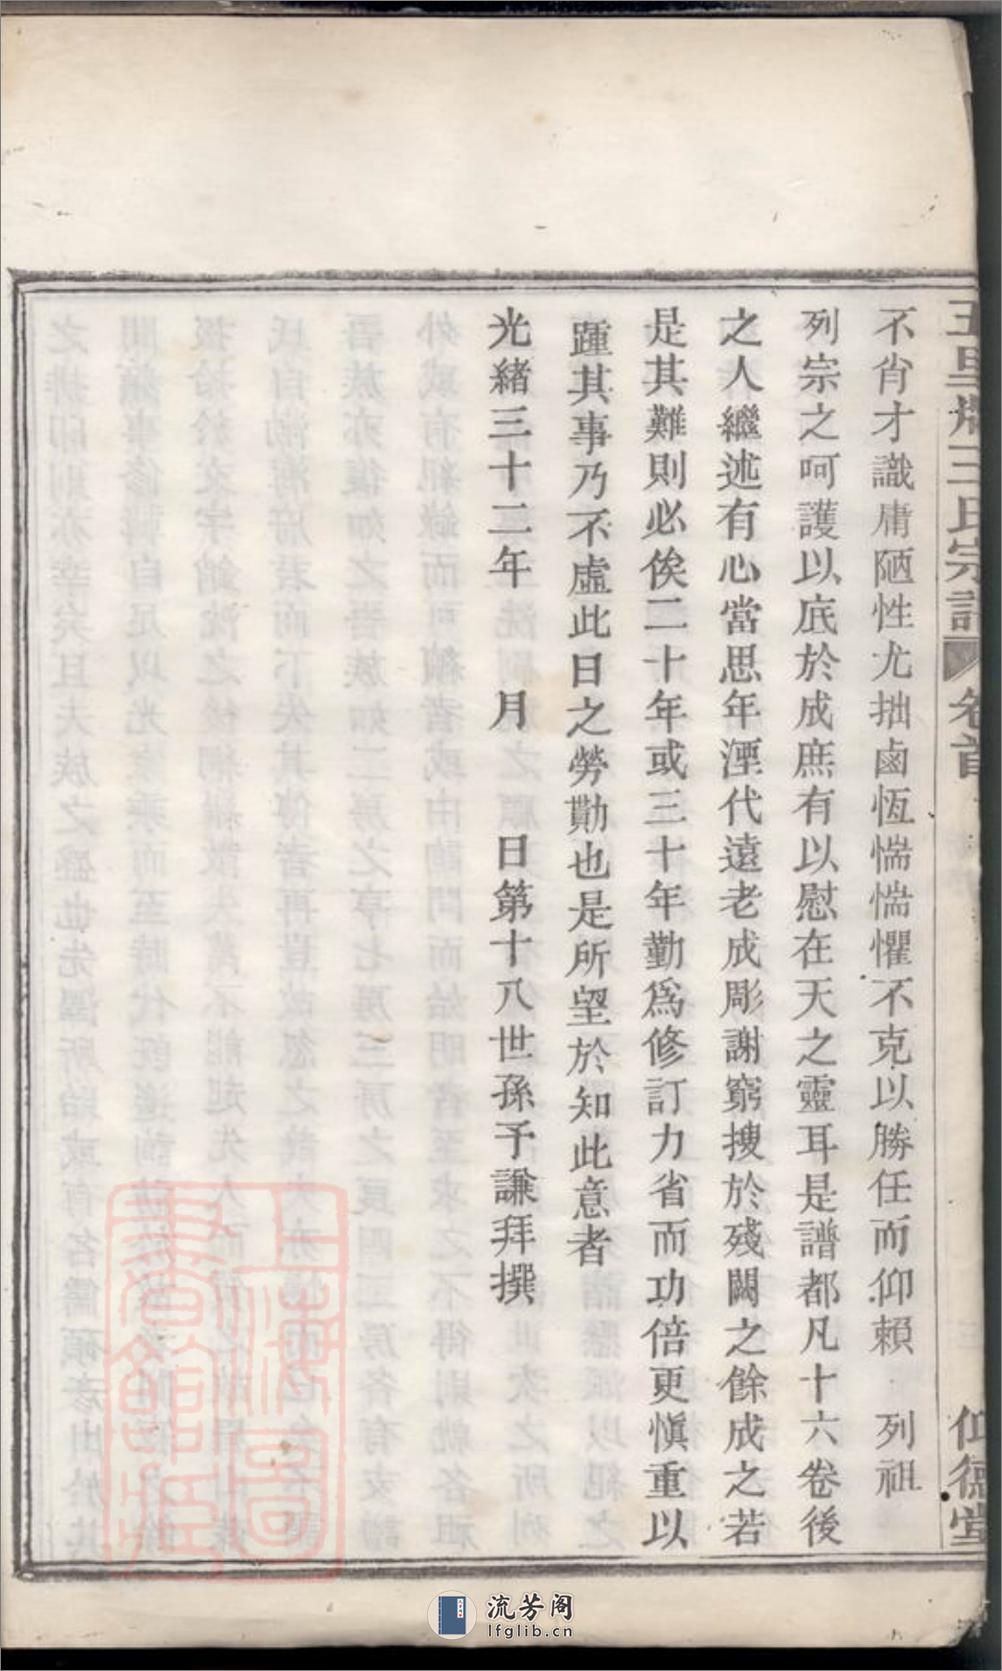 不肖才識庸陋性尤拙鹵恆惴惴懼不克以勝任而仰賴 列祖
列宗之呵護以底於成庶有以慰在天之靈耳是譜都凡十六卷後
之人繼述有心當思年湮代遠老成彫謝窮搜於殘闕之餘成之若
是其難則必俟二十年或三十年勤爲修訂力省而功倍更愼重以
踵其事乃不虛此日之勞勩也是所望於知此意者
光緒三十二年 月 日第十八世孫予謙拜撰
王氏宗譜 卷首 仰德堂
上海圖書館藏
流芳阁
lfglib.cn